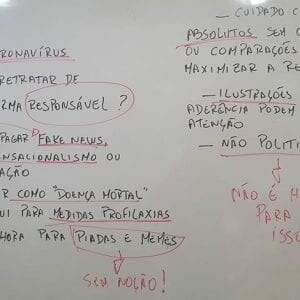 RONAVÍRUS
RETRATAR DE
RMA RESPONSÁVEL ?
PAGAR FAKE NEWS,
NSACIONALISMO OU
AÇÃO
R COMO "DOENÇA MORTAL"
UI PARA MEDIDAS PROFILAXIAS
HORA PARA PIADAS E MEMES
SEM NOÇÃO!
— CUIDADO C
ABSOLUTOS SEM C
OU COMPARAÇÕES
MAXIMIZAR A RE
— ILUSTRAÇÕES
ADERÊNCIA PODEM
ATENÇÃO
— NÃO POLITI
NÃO É H
PARA
ISSO